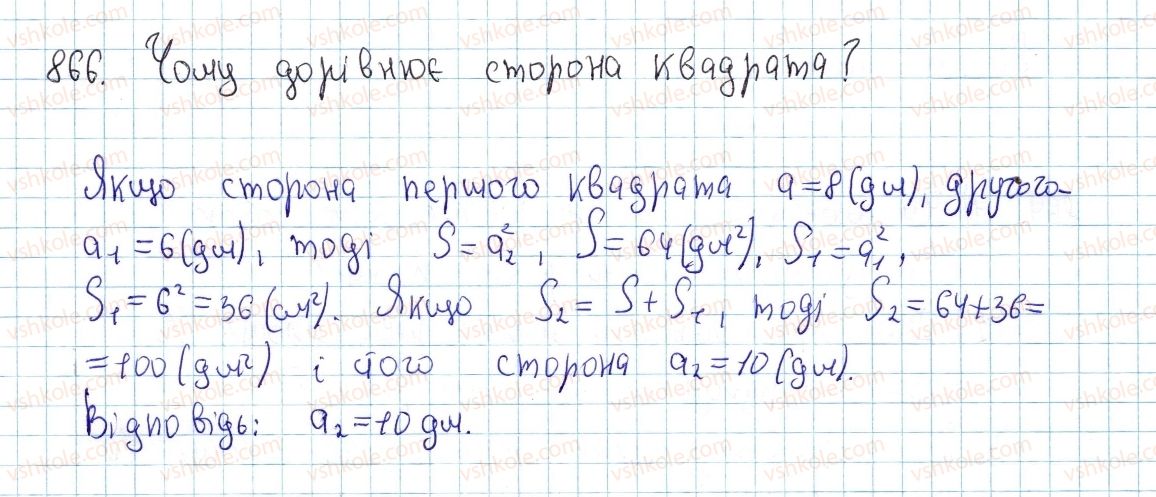 866. Чому дорівнює сторона квадрата?
Якщо сторона першого квадрата a=8(дм), другого-
a₁=6(дм), тоді S=a₂², S=64(дм²), S₁=a₁²,
S₁=6²=36(см²). Якщо S₂=S+S₁, тоді S₂=64+36=
=100(дм²) і його сторона a₂=10(дм).
Відповідь: a₂=10дм.